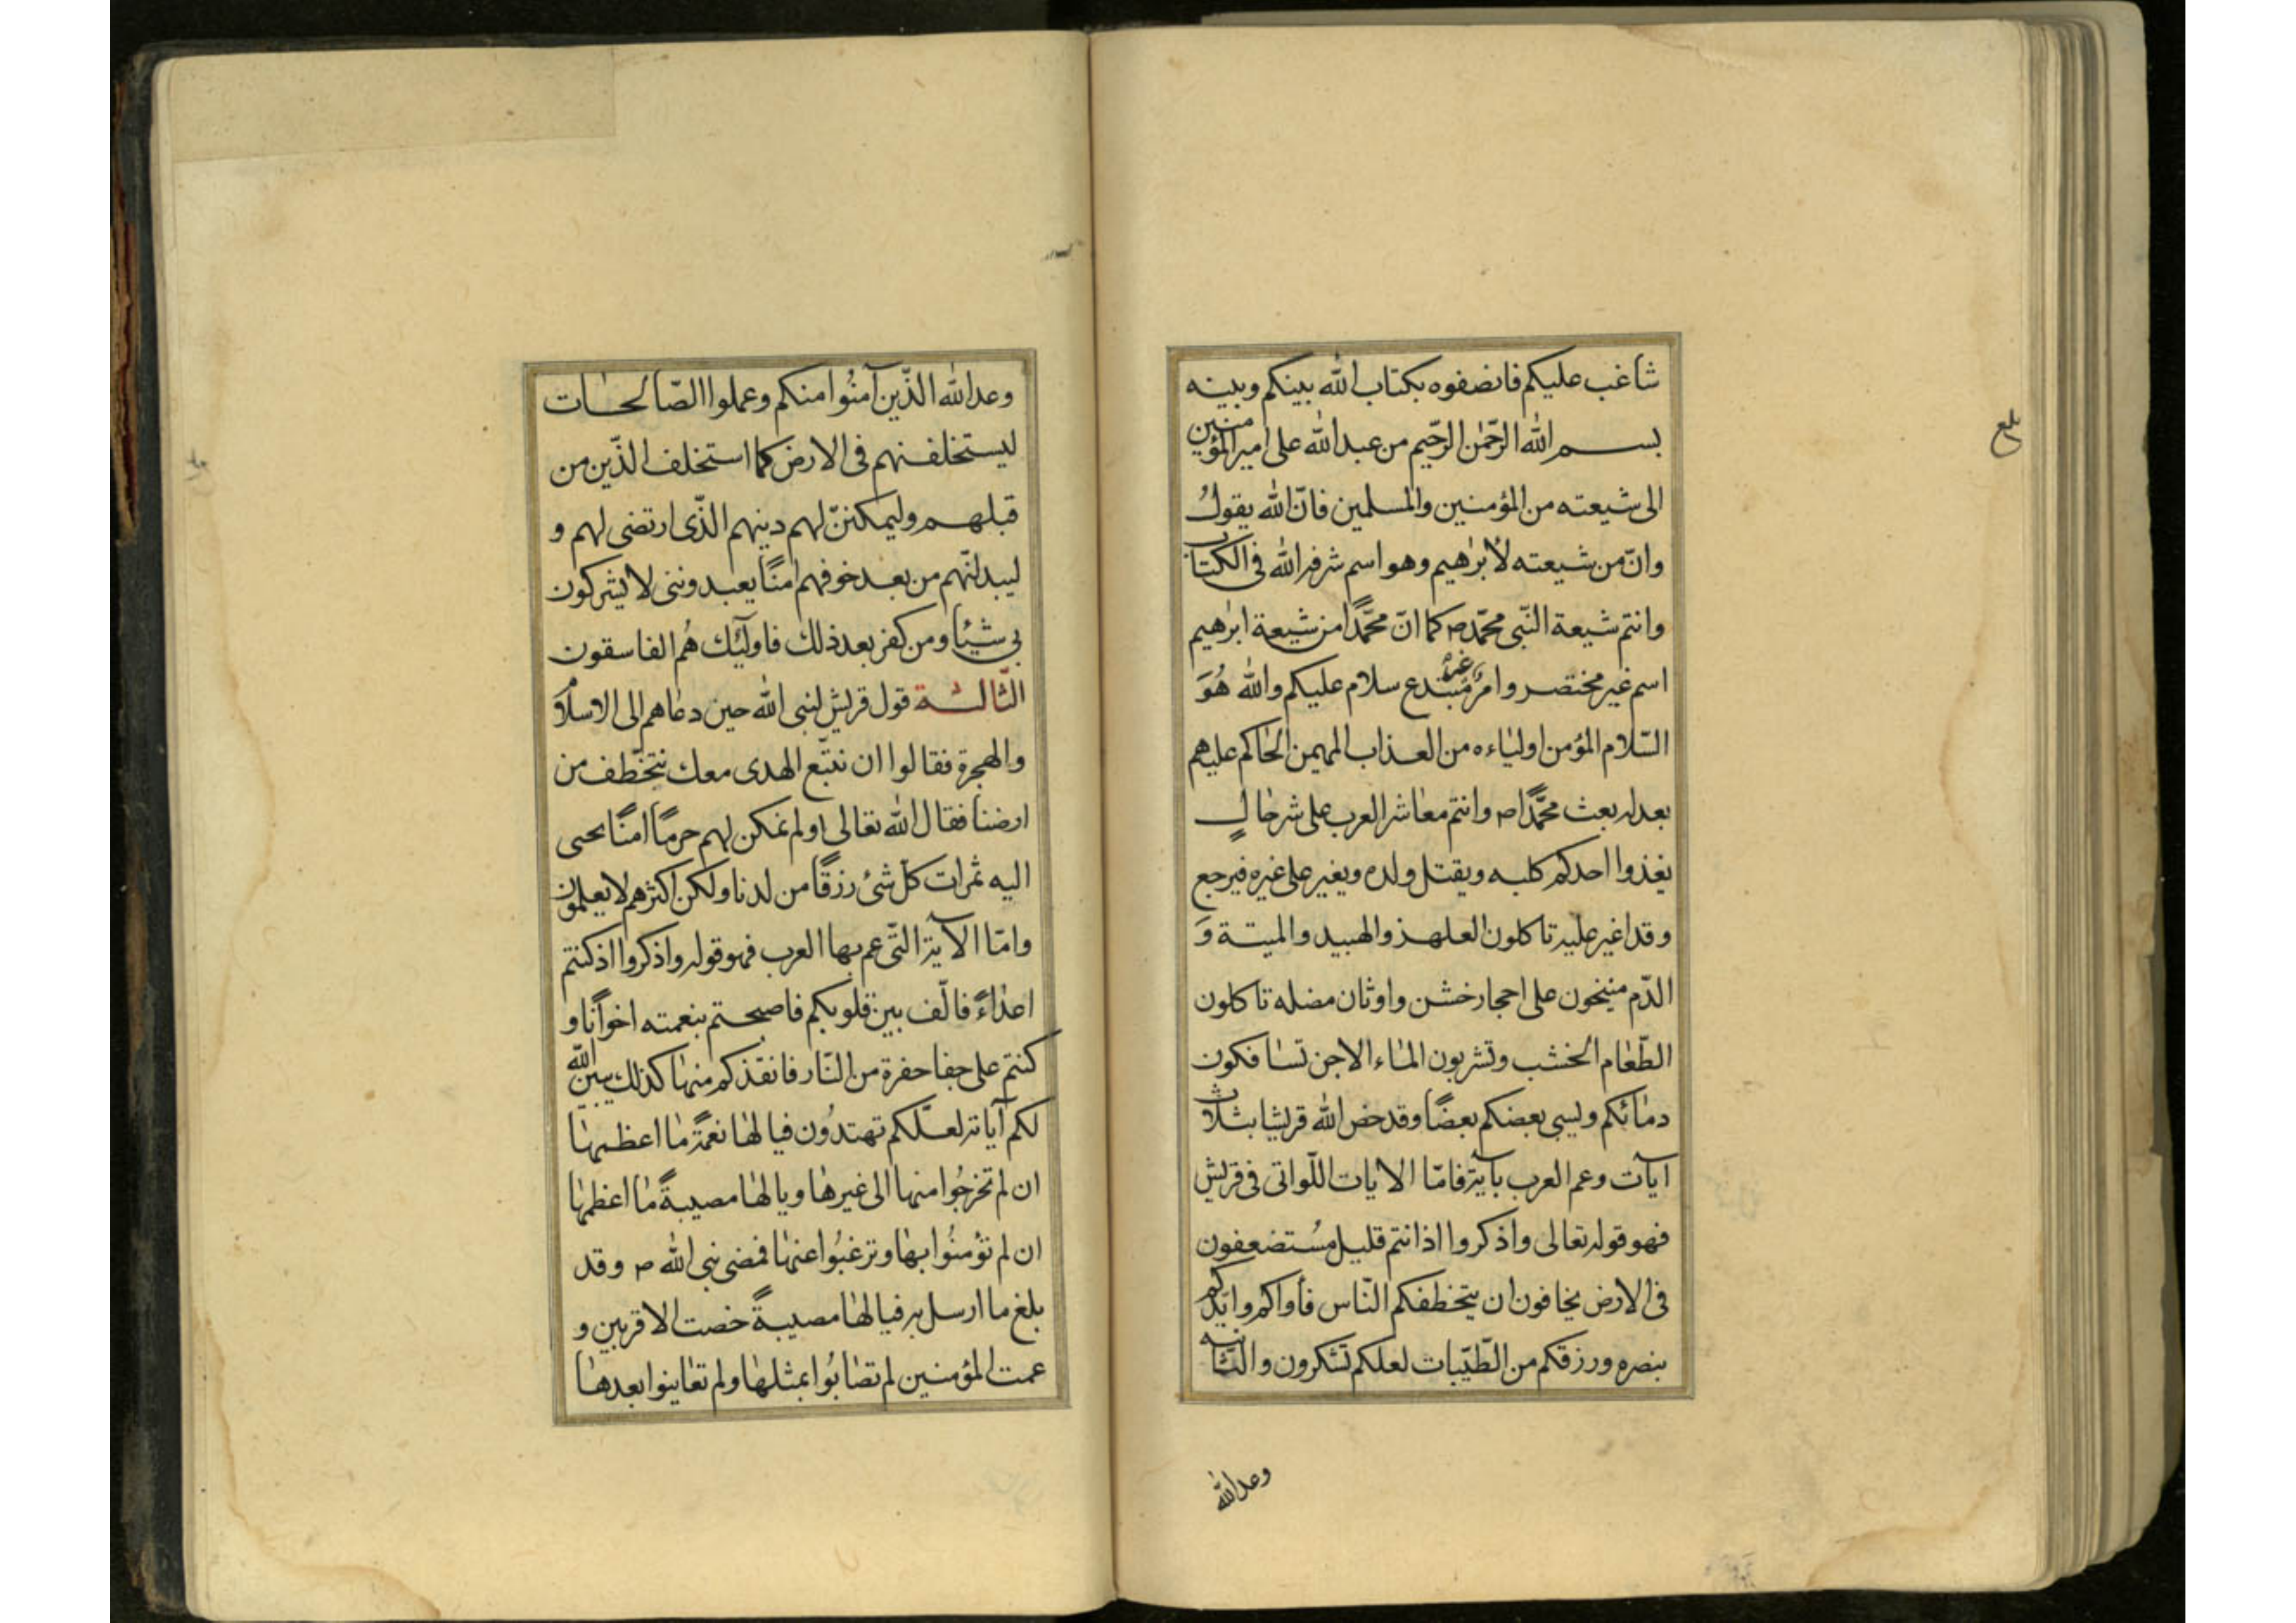 شاغب عليكم فانصفوه بكتاب الله بينكم وبينه
بسم الله الرّحمٰن الرّحيم من عبد الله على امير المؤمنين
الى شيعته من المؤمنين والمسلمين فانّ الله يقولُ
وانّ من شيعته لابرٰهيم وهو اسم شرفه الله فى الكتاب
وانتم شيعة النّبى محمّد ص كما انّ محمّدًا من شيعة ابرٰهيم
اسم غير مختصر وامر غير مبتدع سلام عليكم والله هُوَ
السّلام المؤمن اولياءه من العذاب المهيمن الحاكم عليهم
بعدله بعث محمّدًا ص وانتم معاشر العرب على شر حالٍ
يغذوا احدكم كلبه ويقتل ولده ويغير على غيره فيرجع
وقد اغير عليه تاكلون العلهذ والهبيد والميتة وَ
الدّم منيخون على احجار خشن واوثان مضله تاكلون
الطّعام الخشب وتشربون الماء الاجن تسافكون
دمائكم ويسبى بعضكم بعضًا وقد خص الله قريشا بثلاث
ايآت وعم العرب بآية فامّا الايات اللّواتى فى قريش
فهو قوله تعالى واذكروا اذ انتم قليل مُستضعفون
فى الارض يخافون ان يتخطفكم النّاس فأواكم وايّدكم
بنصره ورزقكم من الطّيّبات لعلكم تشكرون والثّانيه
وعد الله
بلغ
وعد الله الذّين آمنُوا منكم وعملوا الصّالحات
ليستخلفنهم فى الارض كما استخلف الذّين من
قبلهم وليمكننّ لهم دينهم الذّى ارتضى لهم و
ليبدلنّهم من بعد خوفهم امنًا يعبدوننى لا يشركون
بى شيئا ومن كفر بعد ذلك فاولئك هُم الفاسقون
الثّالثة قول قريش لنبى الله حين دعاهم الى الاسلام
والهجرة فقالوا ان نتبّع الهدى معك نتخّطف من
ارضنا فقال الله تعالى اولم نمكن لهم حرمًا امنًا يجبى
اليه ثمرات كلّ شئ رزقًا من لدنا ولكن اكثرهم لا يعلمون
وامّا الآية التّى عم بها العرب فهو قوله واذكروا اذ كنتم
اعداءً فالّف بين قلوبكم فاصبحتم بنعمته اخوانًا و
كنتم على حفا حفرة من النّار فانقذكم منها كذلك يبين الله
لكم آياته لعلّكم تهتدُون فيالها نعمةً ما اعظمها
ان لم تخرجُوا منها الى غيرها ويالها مصيبةً ما اعظمها
ان لم تؤمنُوا بها وترغبُوا عنها فمضى نبى الله ص وقد
بلغ ما ارسل به فيالها مصيبةً خصت الاقربين و
عمت المؤمنين لم تصابُوا بمثلها ولم تعاينوا بعدها